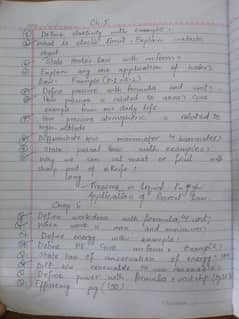 Ch 5
Define elasticity with example.
What is elastic limit. Explain
object
State Hooke's law with
Explain any one application of Hooke's
law. Example
Define pressure with formula and unit.
How pressure is related to area? Give
example from daily life
How pressure atmospheric is related to
altitude
Differentiate b/w manometer & barometer
State pascal law with examples.
Why we can cut meat or food with
sharp part of a knife.
Long
Pressure in liquid
Application of Pascal law.
Chap 6
Define workdone with formula & unit.
When work is max and minimum
Define energy with example.
Define PE
State law of conservation of energy.
Diff b/w renewable & non renewable
Define power with formula
Efficiency pg